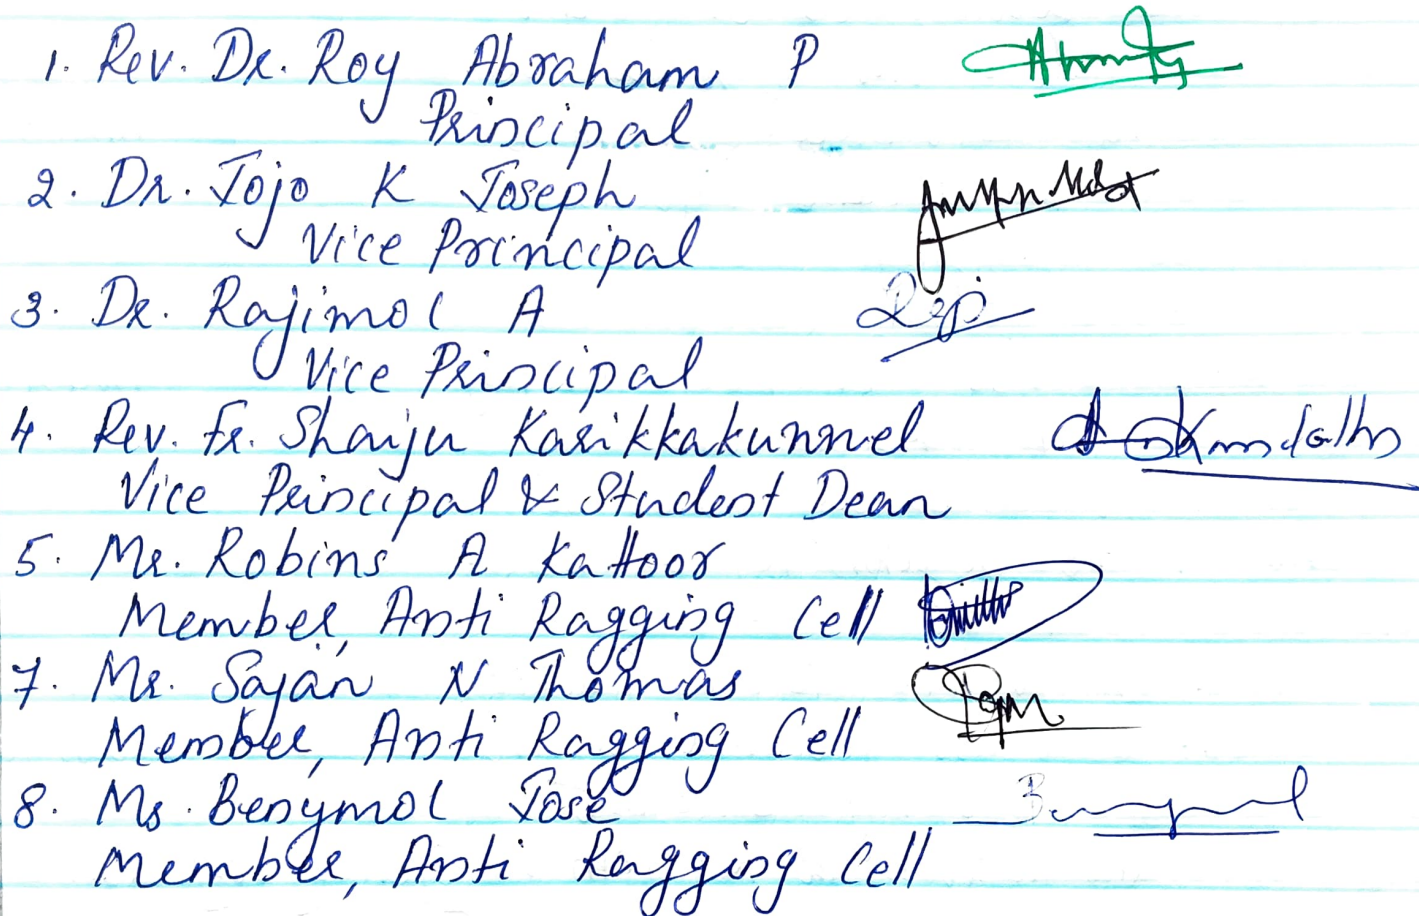 1. Rev. Dr. Roy Abraham P
Principal
2. Dr. Jojo K Joseph
Vice Principal
3. Dr. Rajimol A
Vice Principal
4. Rev. Fr. Shaiju Karikkakunnel
Vice Principal & Student Dean
5. Mr. Robins A Kattoor
Member, Anti Ragging Cell
7. Mr. Sajan N Thomas
Member, Anti Ragging Cell
8. Ms. Benymol Jose
Member, Anti Ragging Cell